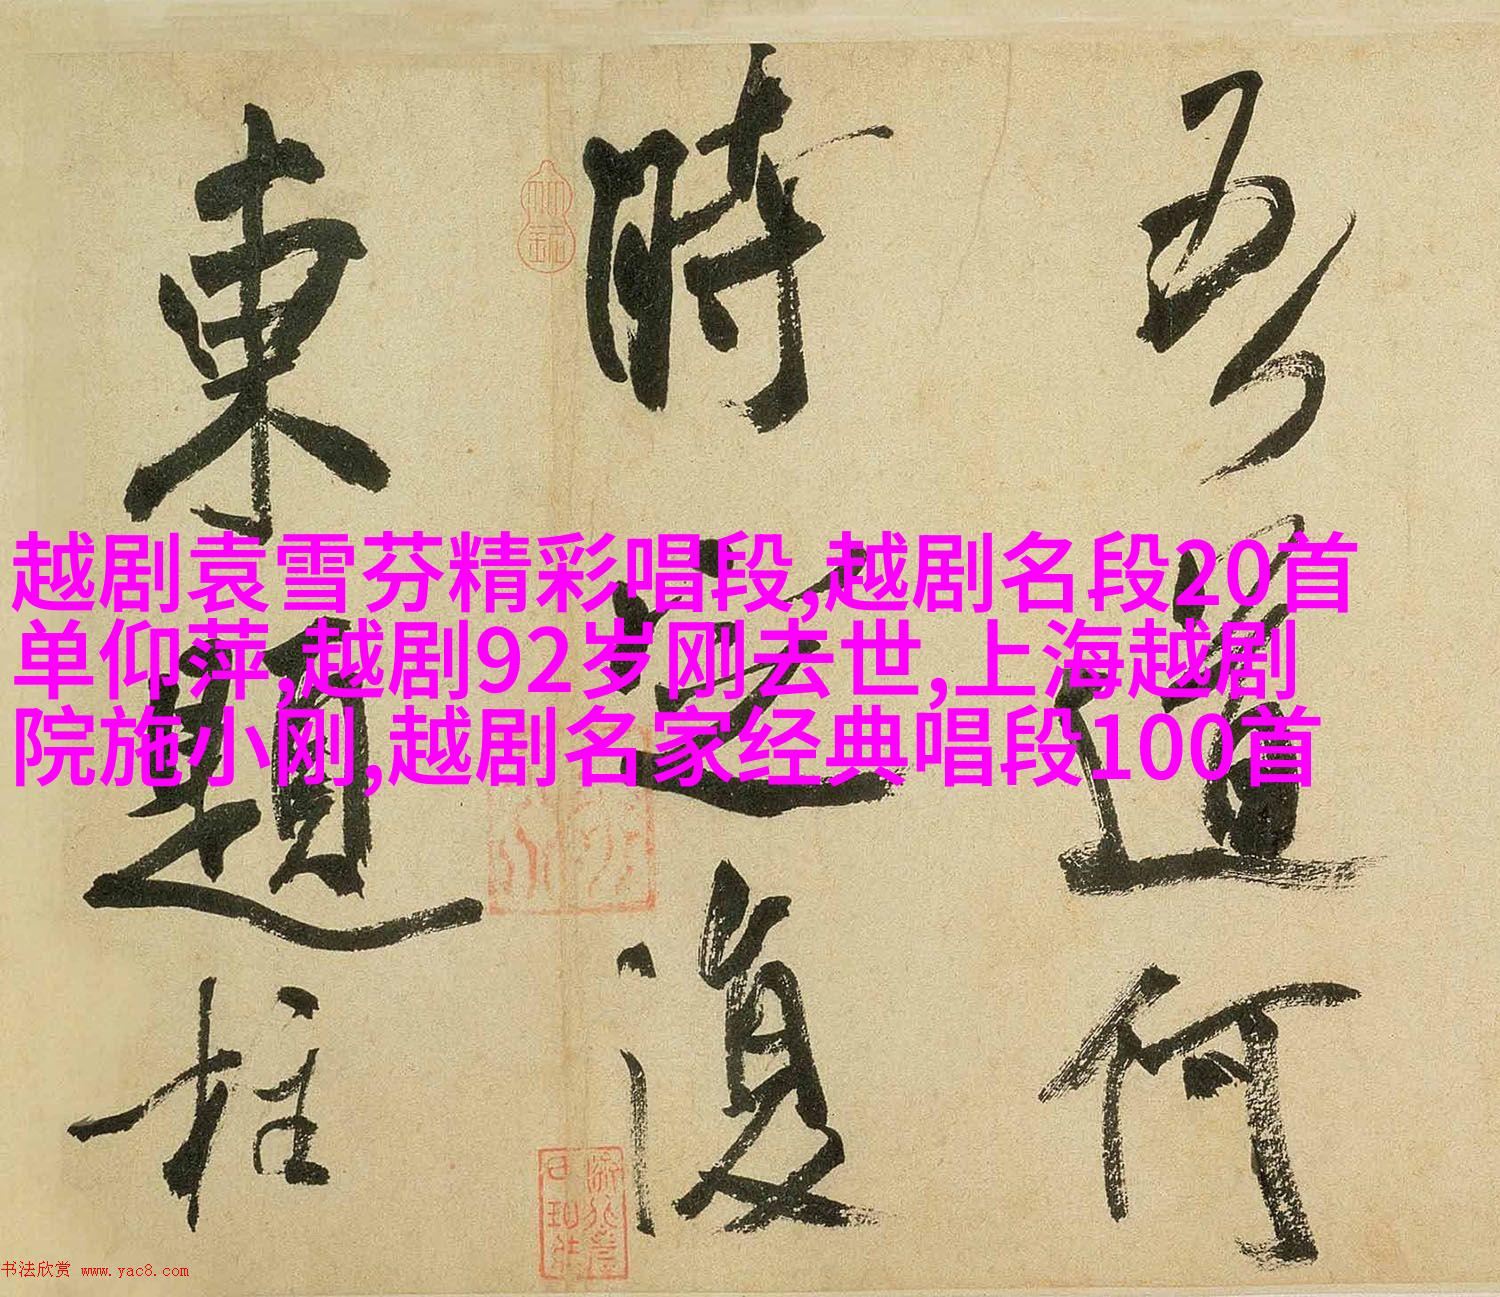 吾道何
時定復
東題柱
越剧袁雪芬精彩唱段,越剧名段20首
单仰萍,越剧92岁刚去世,上海越剧
院施小刚,越剧名家经典唱段100首
书法欣赏 www.yac8.com